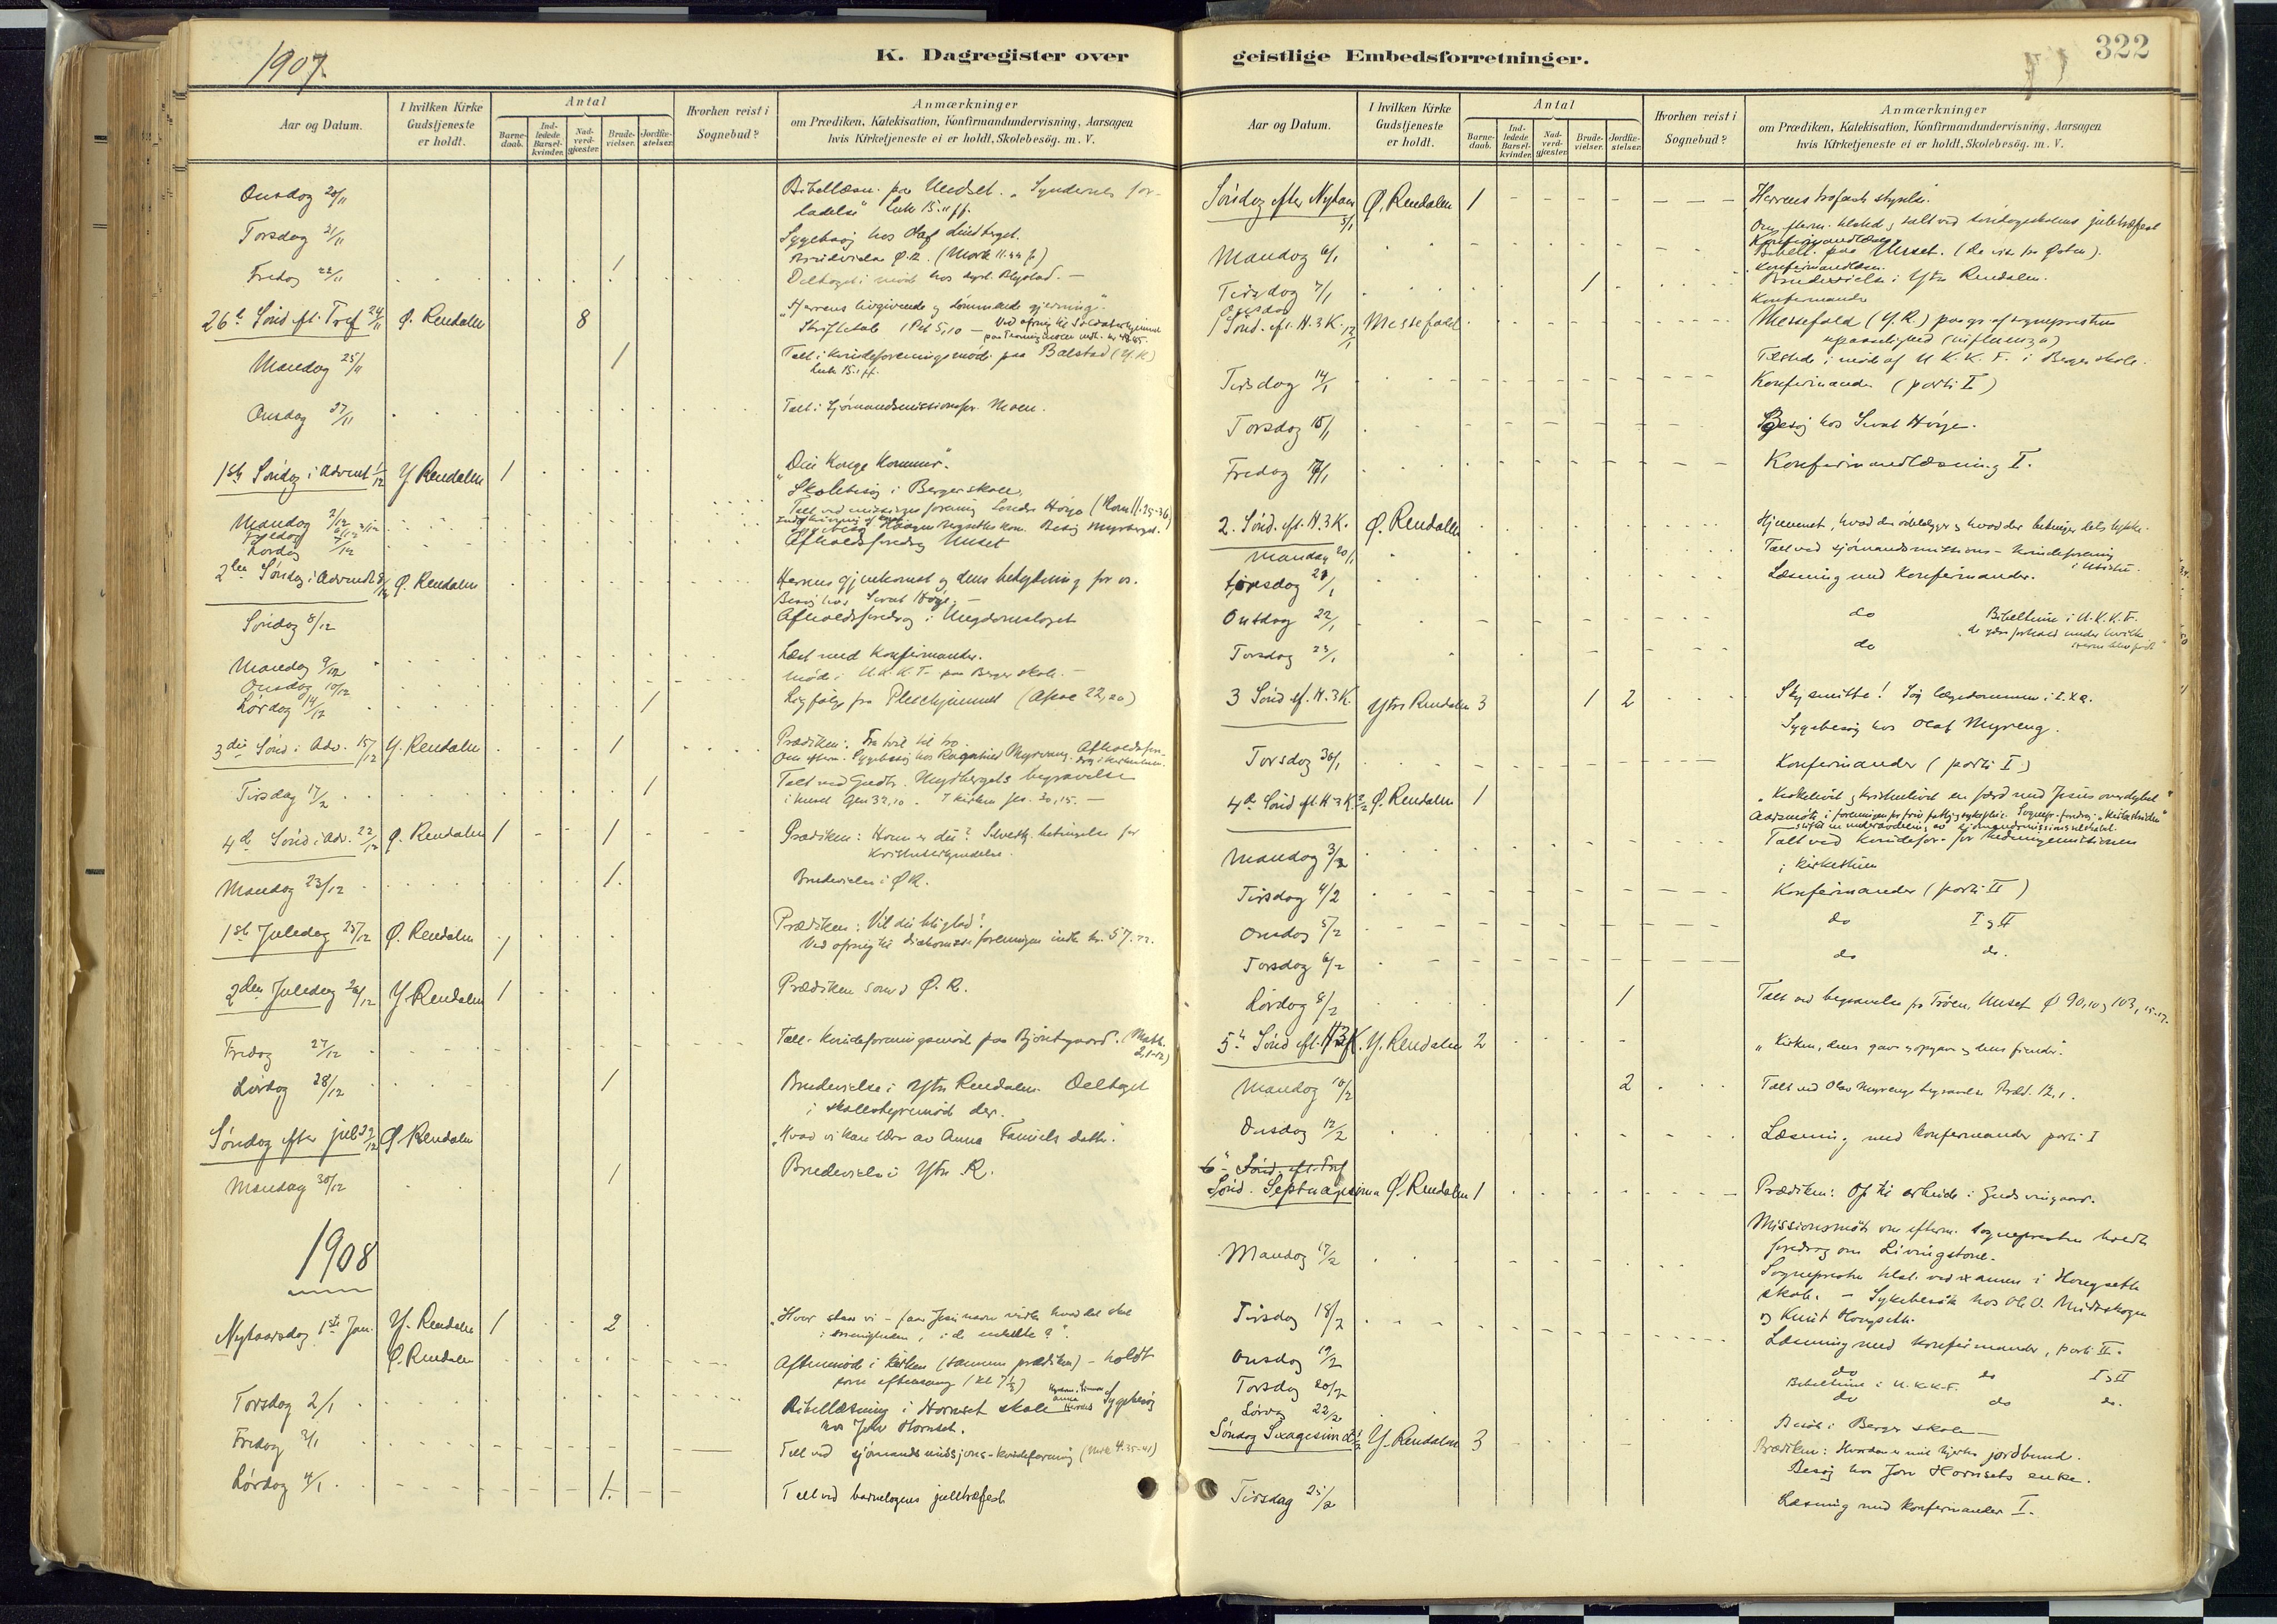 1907.
K. Dagregister over
Aar og Datum.
I hvilken Kirke Gudstjeneste er holdt.
Antal
Barnedaab.
Indledede Barselkvinder.
Nadverdgjæster.
Brudevielser.
Jordfæstelser.
Hvorhen reist i Sognebud?
Anmærkninger
om Prædiken, Katekisation, Konfirmandundervisning, Aarsagen
hvis Kirketjeneste ei er holdt, Skolebesög. m. V.
Onsdag 20/11 Bibellæsn. paa Undset. "Synderens for-
ladelse" Luk 15.11 ff.
Torsdag 21/11 Sygebesøg hos Olaf Lindberget.
Fredag 22/11 1 Brudevielse Ø.R. (Mark 11.24 f)
Deltaget i møde hos
26e Sønd. eft. Tref 24/11 Ø. Rendalen 8 "Herrens livgivende og dømmende gjerning".
Skriftetale 1 Pet 5,10 —
Mandag 25/11 1 Talt i kvindeforeningsmøde paa Balstad (Y.R)
Luk 15.1 ff.
Onsdag 27/11 Talt i Sjømandsmissionsfor. Moen.
1ste Søndag i Advent 1/12 Y. Rendalen 1 "Din Konge kommer".
Mandag 2/12 Skolebesøg i Berger skole.
Talt ved missionsforening Søndre Høye (Rom 11.25-36)
Lørdag 7/12 Afholdsforedrag Unset
2den Søndag i Advent 8/12 Ø. Rendalen Herrens gjenkomst og dens betydning for os.
Besøg hos Sivert Høye. —
Søndag 8/12 Afholdsforedrag i Ungdomslaget
Mandag 9/12 Læst med konfirmander.
Onsdag 10/12 Møde i U.K.K.F. paa Berger skole. —
Lørdag 14/12 1 Ligfølge fra Pleiehjemmet (Apoc 22,20)
3die Sønd. i Adv. 15/12 Y. Rendalen 1 Prædiken: Fra tvil til tro.
Om efterm. Sygebesøg hos Ragnhild Myrvang. Afholdsfor-
Tirsdag 17/12 1 Talt ved Gudbr. Myrbergets begravelse
i huset Gen 32,10. I kirken Jes. 30,15. —
4de Sønd. i Adv. 22/12 Ø. Rendalen 1 1 Prædiken: Hvem er du? Selverkj. betingelse for
Kristuserkjendelse.
Mandag 23/12 1. Brudevielse i ØR.
1ste Juledag 25/12 Ø. Rendalen 1 Prædiken: Vil du bli glad?
Ved ofring til diakonisseforeningen indk. kr. 57.22.
2den Juledag 26/12 Y. Rendalen 1 Prædiken som i Ø.R.
Fredag 27/12 Talt. Kvindeforeningsmøde paa Bjøntgaard. (Math. 2,1-12)
Lørdag 28/12 1 Brudevielse i Ytre Rendalen. Deltaget
i skolestyremøde der.
Søndag efter jul 29/12 Ø. Rendalen "Hvad vi kan lære av Anna Fanuels datter."
Mandag 30/12 1 Brudevielse i Ytre R.
1908
Nytaarsdag 1ste Jan. Y. Rendalen 1 2 "Hvor staar vi –
i menigheden, i de enkelte?".
Ø. Rendalen Aftenmøde i kirken (samme prædiken) – holdt
som aftensang (kl 7½)
Torsdag 2/1 Bibellæsning i Hornset skole Sygebesøg
hos John Hornset.
Fredag 3/1 Talt ved sjømandsmissjons-kvindeforening (Mrk 4.35-41)
Lørdag 4/1 1. Talt ved barnelogens juletræfest
geistlige Embedsforretninger.
322
Aar og Datum.
I hvilken Kirke Gudstjeneste er holdt.
Antal
Barnedaab.
Indledede Barselkvinder.
Nadverdgjæster.
Brudevielser.
Jordfæstelser.
Hvorhen reist i Sognebud?
Anmærkninger
om Prædiken, Katekisation, Konfirmandundervisning, Aarsagen
hvis Kirketjeneste ei er holdt, Skolebesög. m. V.
Søndag efter Nytaar 5/1 Ø. Rendalen 1 "Herrens trofaste styrelse."
Om efterm. tilstede og talt ved søndagsskolens juletræfest
Mandag 6/1 Konfirmandlæsn.
Bibell. paa Unset.
Tirsdag 7/1 1 Brudevielse i Ytre Rendalen.
Onsdag Konfirmander
1 Sønd. eft. H.3K. 12/1 Messefald Messefald (Y.R.) paa gr. af sognepresten
upasselighed (influenza)
Tilstede i møde af U.K.K.F. i Berger skole.
Tirsdag 14/1 Konfirmander (parti I)
Torsdag 15/1 Besøg hos Sivert Høye.
Fredag 17/1 Konfirmandlæsning I.
2. Sønd. eft. H.3K. Ø. Rendalen Hjemmet, hvad der ødelægger og hvad der betinger dets lykke.
Mandag 20/1 Talt ved sjømandsmissions-kvindeforening
Tirsdag 21/1 Læsning med konfirmander.
Onsdag 22/1 do Bibeltime i U.K.K.F.
Torsdag 23/1 do
3 Sønd. ef. H.3K. Ytre Rendalen 3 1 2 Sky smitte! Søg lægedommen i I. X a.
Sygebesøg hos Olaf Myreng.
Torsdag 30/1 Konfirmander (parti I)
4de Sønd. eft. H.3K 2/2 Ø. Rendalen 1
Mandag 3/2 Talt ved kvindefor. for hedningemissionen
i kirkestuen
Tirsdag 4/2 Konfirmander (parti II)
Onsdag 5/2 do I og II
Torsdag 6/2 do do.
Lørdag 8/2 1 Talt ved begravelse fra Trøen, Unset Ø 90,10 og 103, 15-17.
5te Sønd. eft. H3K. Y. Rendalen 2 "Kirken, dens gave og opgave og dens fiender".
Mandag 10/2 2 Talt ved Olav Myrengs begravelse Præd. 12,1.
Onsdag 12/2 Læsning med konfirmander parti I
6te Sønd. eft. Tref
Sønd. Septuagesima Ø. Rendalen 1 Prædiken: Op til arbeide i Guds vingaard.
Missionsmøte om efterm. Sognepresten holdt
foredrag om Livingstone.
Mandag 17/2 Sognepresten tilst. ved examen i Haugseth
skole. – Sykebesøk hos Ole O. Midtskogen
og Knut Haugseth.
Tirsdag 18/2 Læsning med konfirmander, parti II.
Onsdag 19/2 do do I og II
Bibeltime i U.K.K.F.
Torsdag 20/2 do do do.
Lørdag 22/2 Besøk i Berger skole —
Søndag Sexagesima Y. Rendalen 3 Prædiken: Hvordan er mit hjertes jordbund.
Besøg hos Jon Hornsets enke.
Tirsdag 25/2 Læsning med konfirmander I.